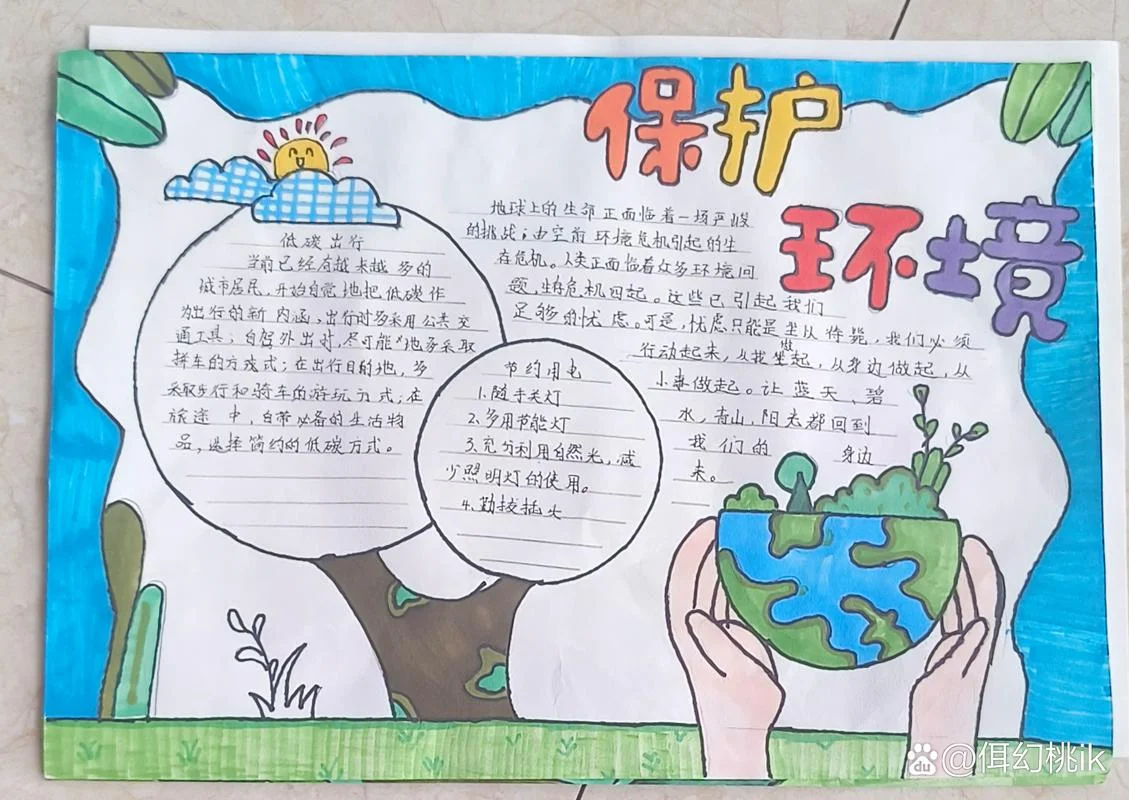 保护
环境
低碳出行
当前已经有越来越多的
城市居民,开始自觉地把低碳作
为出行的新内涵,出行时多采用公共交
通工具;自驾外出时,尽可能地多采取
拼车的方式;在出行目的地,多
采取步行和骑车的游玩方式;在
旅途中,自带必备的生活物
品,选择简约的低碳方式。
节约用电
1.随手关灯
2.多用节能灯
3.充分利用自然光,减
少照明灯的使用。
4.勤拔插火
地球上的生命正面临着一场严峻
的挑战;由空前环境危机引起的生
存危机。人类正面临着众多环境问
题,生态危机四起。这些已引起我们
足够的忧虑。可是,忧虑只能是坐以待毙,我们必须
行动起来,从我做起,从身边做起,从
小事做起。让蓝天、碧
水,青山,阳光都回到
我们的身边
来。
@佴幻桃ik